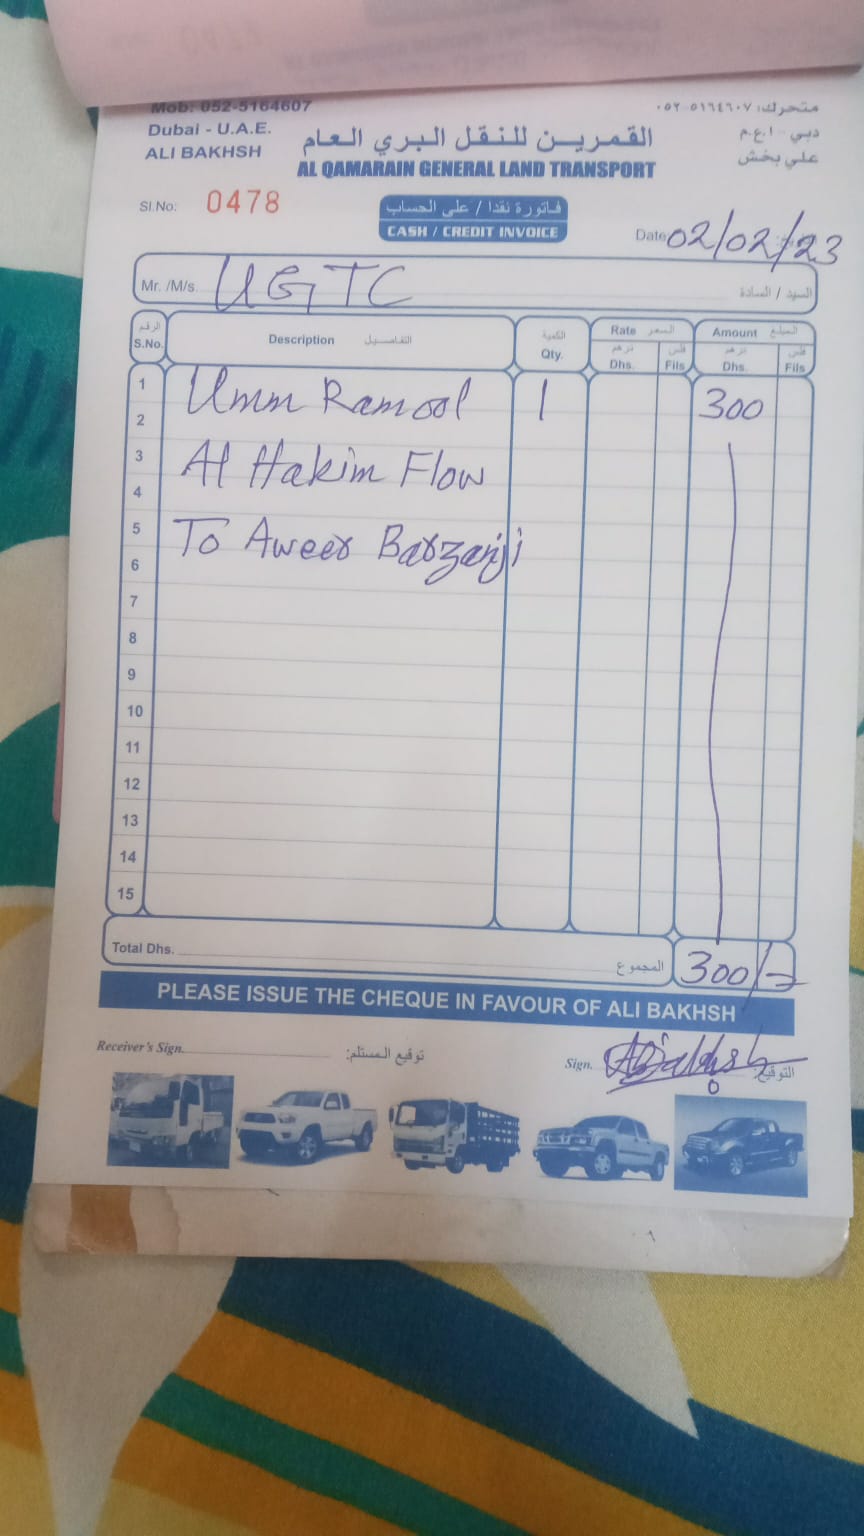 Mob: 052-5164607
متحرك: ٠٥٢-٥١٦٤٦٠٧
Dubai - U.A.E.
دبي - ا.ع.م
ALI BAKHSH
علي بخش
القمرين للنقل البري العام
AL QAMARAIN GENERAL LAND TRANSPORT
Sl.No: 0478
فاتورة نقدا / على الحساب
CASH / CREDIT INVOICE
Date 02/02/23
Mr. /M/s. UGTC السيد / السادة
الرقم S.No.
Description التفاصيل
الكمية Qty.
Rate السعر
Amount المبلغ
درهم فلس درهم فلس
Dhs. Fils Dhs. Fils
1 Umm Ramool 1 300
2
3 Al Hakim Flow
4
5 To Aweer Barzanji
6
7
8
9
10
11
12
13
14
15
Total Dhs. المجموع 300/-
PLEASE ISSUE THE CHEQUE IN FAVOUR OF ALI BAKHSH
Receiver's Sign. توقيع المستلم:
Sign. التوقيع: